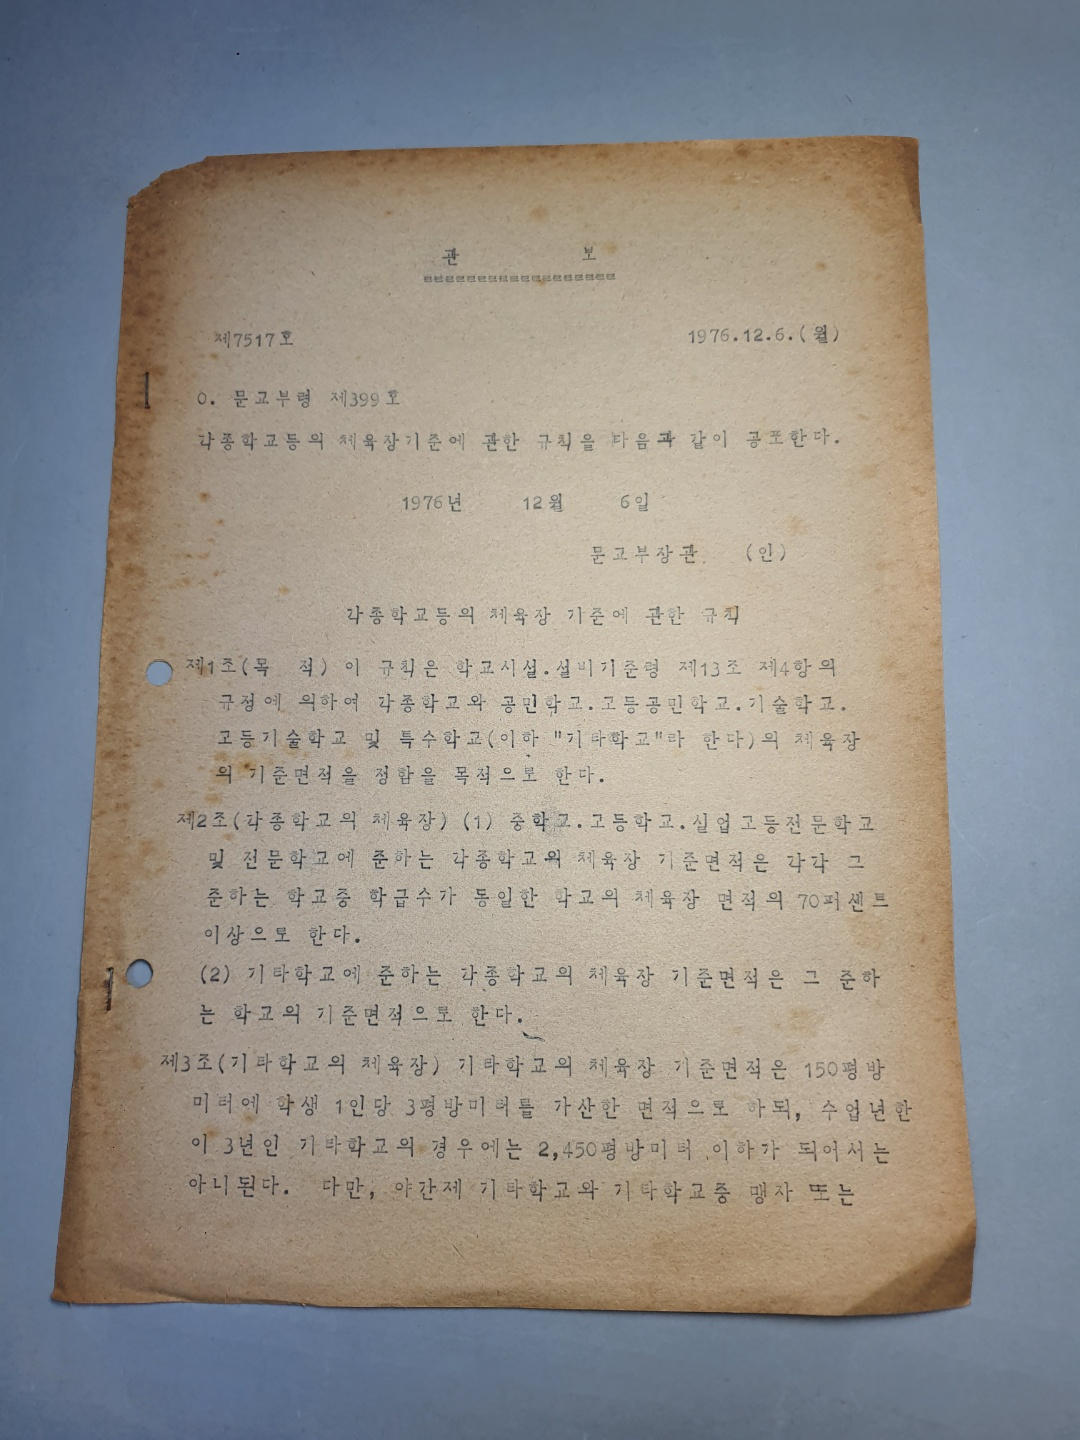 관 보
제7517호 1976.12.6.(월)
O. 문교부령 제399호
각종학교등의 체육장기준에 관한 규칙을 다음과 같이 공포한다.
1976년 12월 6일
문교부장관 (인)
각종학교등의 체육장 기준에 관한 규칙
제1조(목 적) 이 규칙은 학교시설.설비기준령 제13조 제4항의
규정에 의하여 각종학교와 공민학교.고등공민학교.기술학교.
고등기술학교 및 특수학교(이하 "기타학교"라 한다)의 체육장
의 기준면적을 정함을 목적으로 한다.
제2조(각종학교의 체육장) (1) 중학교.고등학교.실업고등전문학교
및 전문학교에 준하는 각종학교의 체육장 기준면적은 각각 그
준하는 학교중 학급수가 동일한 학교의 체육장 면적의 70퍼센트
이상으로 한다.
(2) 기타학교에 준하는 각종학교의 체육장 기준면적은 그 준하
는 학교의 기준면적으로 한다.
제3조(기타학교의 체육장) 기타학교의 체육장 기준면적은 150평방
미터에 학생 1인당 3평방미터를 가산한 면적으로 하되, 수업년한
이 3년인 기타학교의 경우에는 2,450평방미터 이하가 되어서는
아니된다. 다만, 야간제 기타학교와 기타학교중 맹자 또는